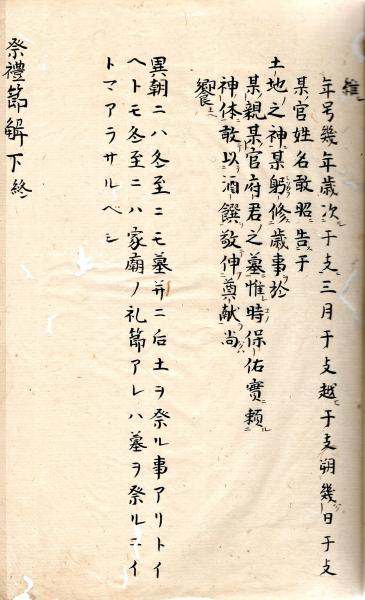 維
年号幾年歳次干支三月干支越干支朔幾日干支
某官姓名敢昭告于
土地之神某躬修歳事於
某親某官府君之墓惟時保佑實頼
神休敢以酒饌敬伸奠献尚
饗
異朝ニハ冬至ニモ墓并ニ后土ヲ祭ル事アリトイ
ヘトモ冬至ニハ家廟ノ礼節アレハ墓ヲ祭ルニイ
トマアラサルベシ
祭禮節解下終